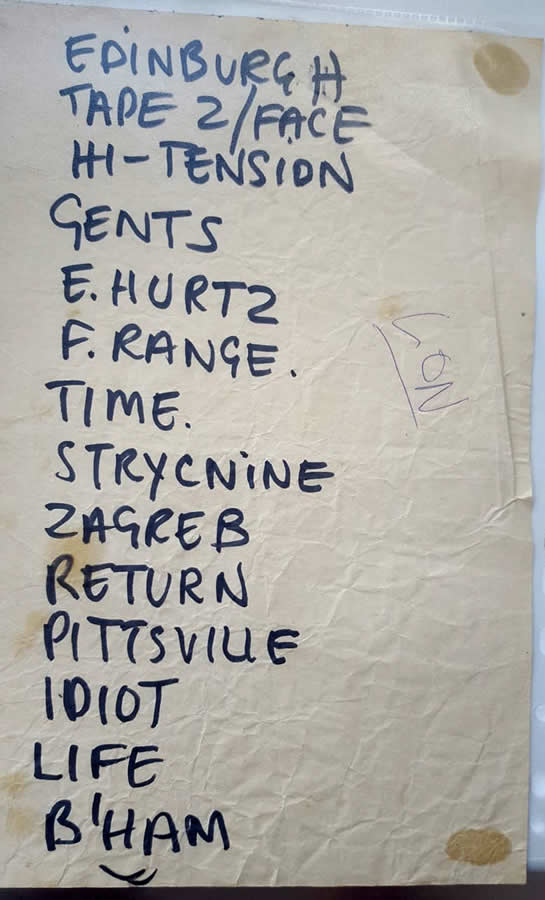 EDINBURGH
TAPE 2/FACE
HI-TENSION
GENTS
E. HURTZ
F. RANGE.
TIME.
STRYCNINE
ZAGREB
RETURN
PITTSVILLE
IDIOT
LIFE
B'HAM
LON